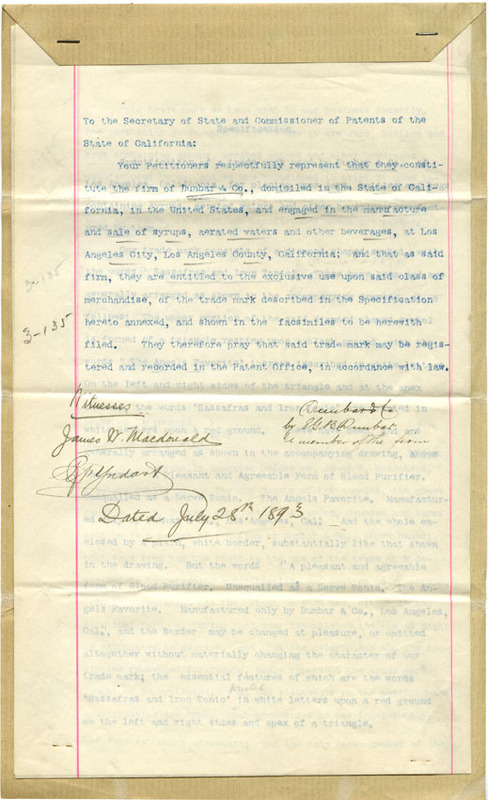 To the Secretary of State and Commissioner of Patents of the
Specification.
State of California:
Your Petitioners respectfully represent that they consti-
tute the firm of Dunbar & Co., domiciled in the State of Cali-
fornia, in the United States, and engaged in the manufacture
and sale of syrups, aerated waters and other beverages, at Los
Angeles City, Los Angeles County, California; and that as said
firm, they are entitled to the exclusive use upon said class of
merchandise, of the trade mark described in the Specification
hereto annexed, and shown in the facsimiles to be herewith
filed. They therefore pray that said trade mark may be regis-
tered and recorded in the Patent Office, in accordance with law.
3-135
3-135
On the left and right sides of the triangle and at the apex
Witnesses
Dunbar & Co
the words "Sassafras and Iron
by Dunbar
a member of the firm
James W. Macdonald
generally arranged as shown in the accompanying drawing, above
pleasant and Agreeable Form of Blood Purifier.
Unequalled as a Nerve Tonic. The Angels Favorite. Manufactur-
Dated July 28th 1893
Cal. And the whole en-
closed by white border, substantially like that shown
in the drawing. But the words "A pleasant and agreeable
form of Blood Purifier. Unequalled as a Nerve Tonic. The An-
gels Favorite. Manufactured only by Dunbar & Co., Los Angeles,
Cal", and the border may be changed at pleasure, or omitted
altogether without materially changing the character of our
trade mark; the essential features of which are the words
printed
"Sassafras and Iron Tonic" in white letters upon a red ground
on the left and right sides and apex of a triangle.